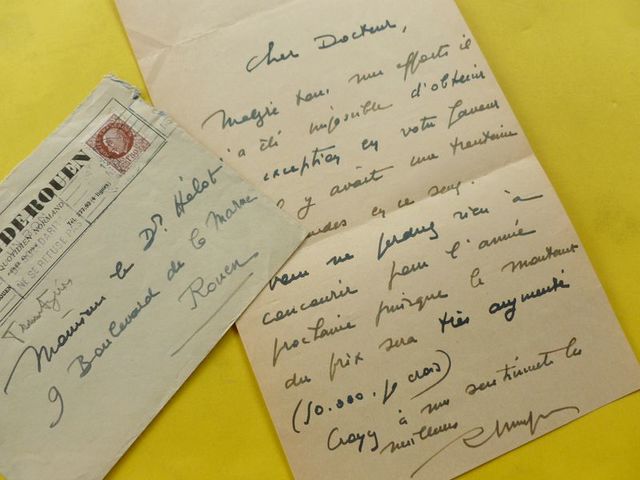 DE ROUEN
QUOTIDIEN NORMAND
NE SE REFUSE PAS
Monsieur le Dr Hélot
9 Boulevard de la Marne
Rouen
Cher Docteur,
Malgré tous mes efforts il
a été impossible d'obtenir
exception en votre faveur
il y avait une trentaine
en ce sens.
vous ne perdrez rien à
concourir pour l'année
prochaine puisque le montant
du prix sera très augmenté
(50.000. fr crois)
Croyez à mes sentiments les
meilleurs